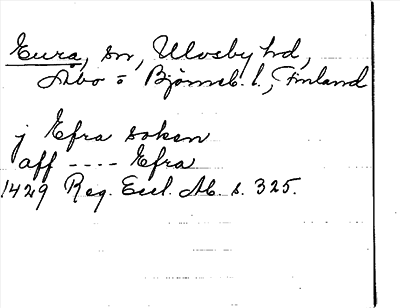 Eura, sn, Ulvsby hd,
Åbo o Björneb. l., Finland
j Efra soken
aff ---- Efra
1429 Reg. Eccl. Ab. s. 325.